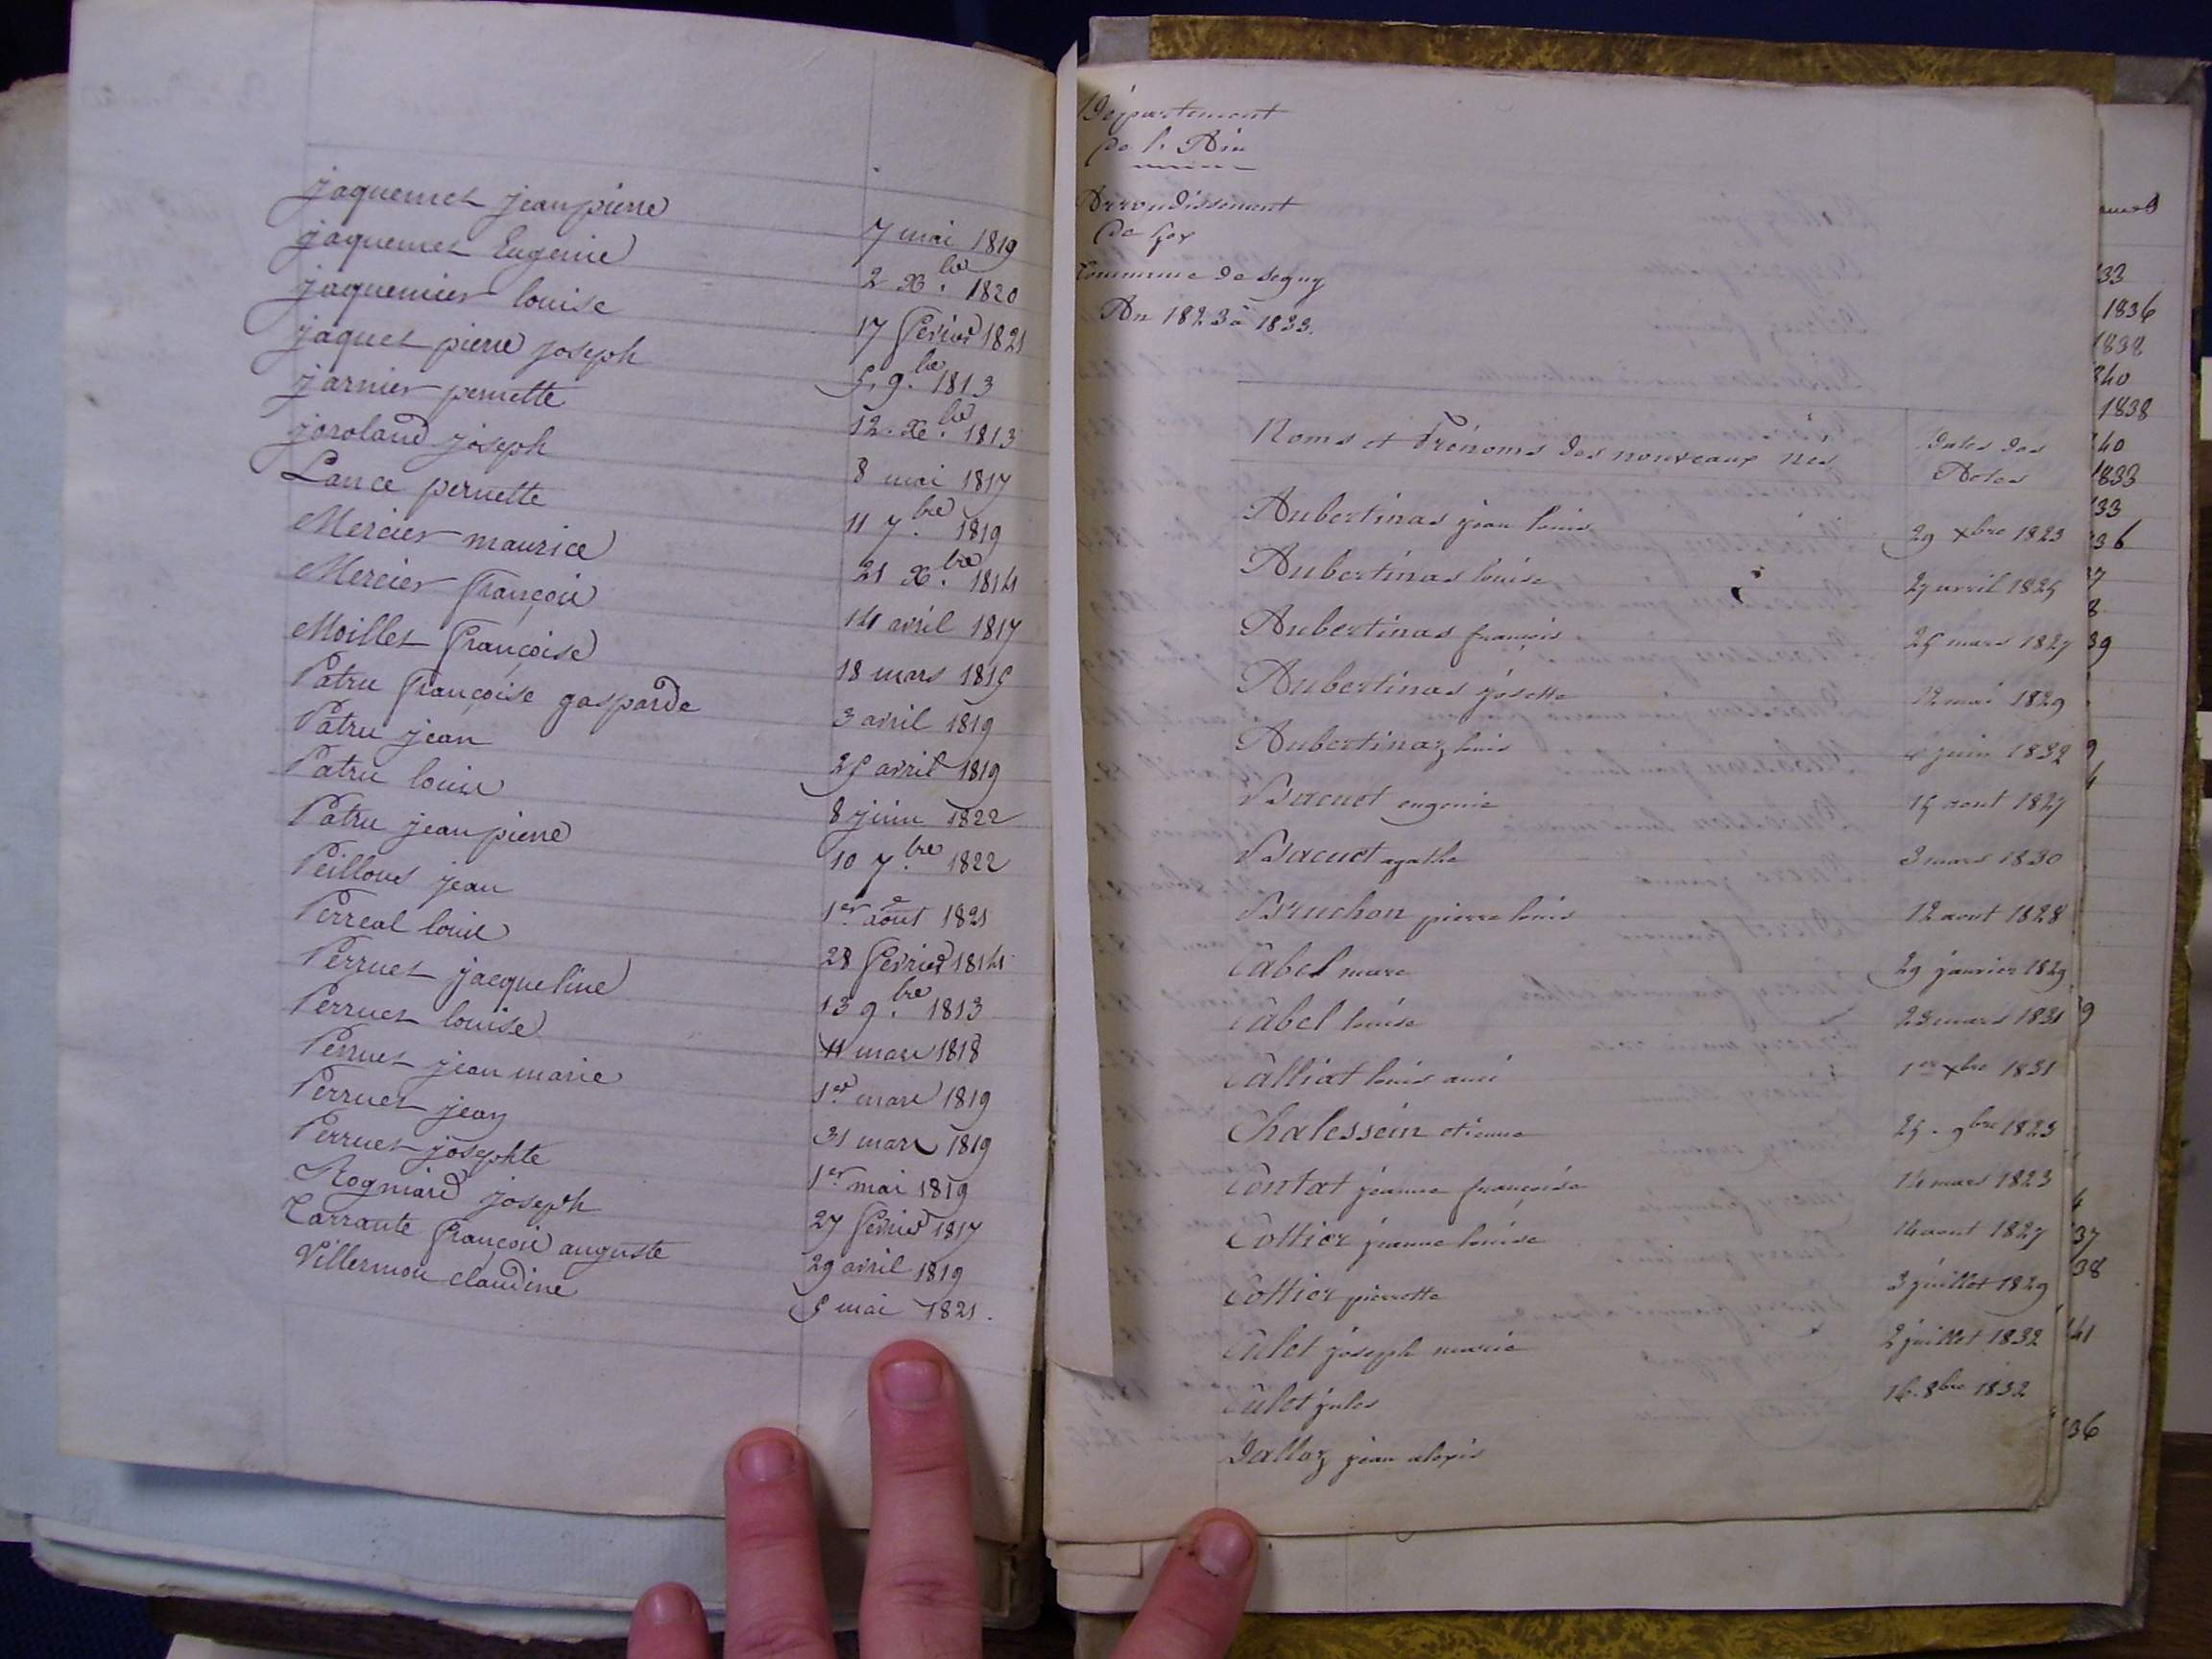 jaquemet jean pierre 7 mai 1819
jaquemet Eugenie 2 Xbre 1820
jaquemier louise 17 fevrier 1821
jaquet pierre joseph 5 9.bre 1813
jarnier pernette 12. Xbre 1813
joroland joseph 8 mai 1817
Lance pernette 11 7.bre 1819
Mercier maurice 21 X.bre 1814
Mercier françois 14 avril 1817
Moillet françoise 18 mars 1815
Patru françoise gasparde 3 avril 1819
Patru jean 25 avril 1819
Patru louise 8 juin 1822
Patru jean pierre 10 7.bre 1822
Peilloud jean 1er aout 1821
Perreal louis 28 fevrier 1814
Perruet jacqueline 13 9.bre 1813
Perruet louise 11 mars 1818
Perruet jean marie 1er mars 1819
Perruet jean 31 mars 1819
Perruet josephte 1er mai 1819
Rogniard joseph 27 fevrier 1817
Tarrante françois auguste 29 avril 1819
Villermou claudine 5 mai 1821.
Département
De l'Ain
Arrondissement
De Gex
Commune de segny
An 1823 à 1833.
Noms et Prénoms des nouveaux nés
Dates des
Actes
Aubertinas jean louis 29 xbre 1823
Aubertinas louise 27 avril 1825
Aubertinas françois 25 mars 1827
Aubertinas josette 12 mai 1829
Aubertinaz louis juin 1832
Bacuet eugenie 15 aout 1827
Bacuet agathe 3 mars 1830
Bruchon pierre louis 12 aout 1828
Cabel marc 29 janvier 1829
Cabel louise 23 mars 1831
Calliat louis ami 1er xbre 1831
Chalessein etienne 25. 9bre 1823
Contat jeanne françoise 14 mars 1823
Cottier jeanne louise 14 aout 1827
Cottier pierrette 3 juillet 1829
Culet joseph marie 2 juillet 1832
Culet jules 16. 8bre 1832
Dalloz jean alexis
33
1836
1838
40
1838
40
1833
33
36
37
8
39
9
39
37
38
41
36